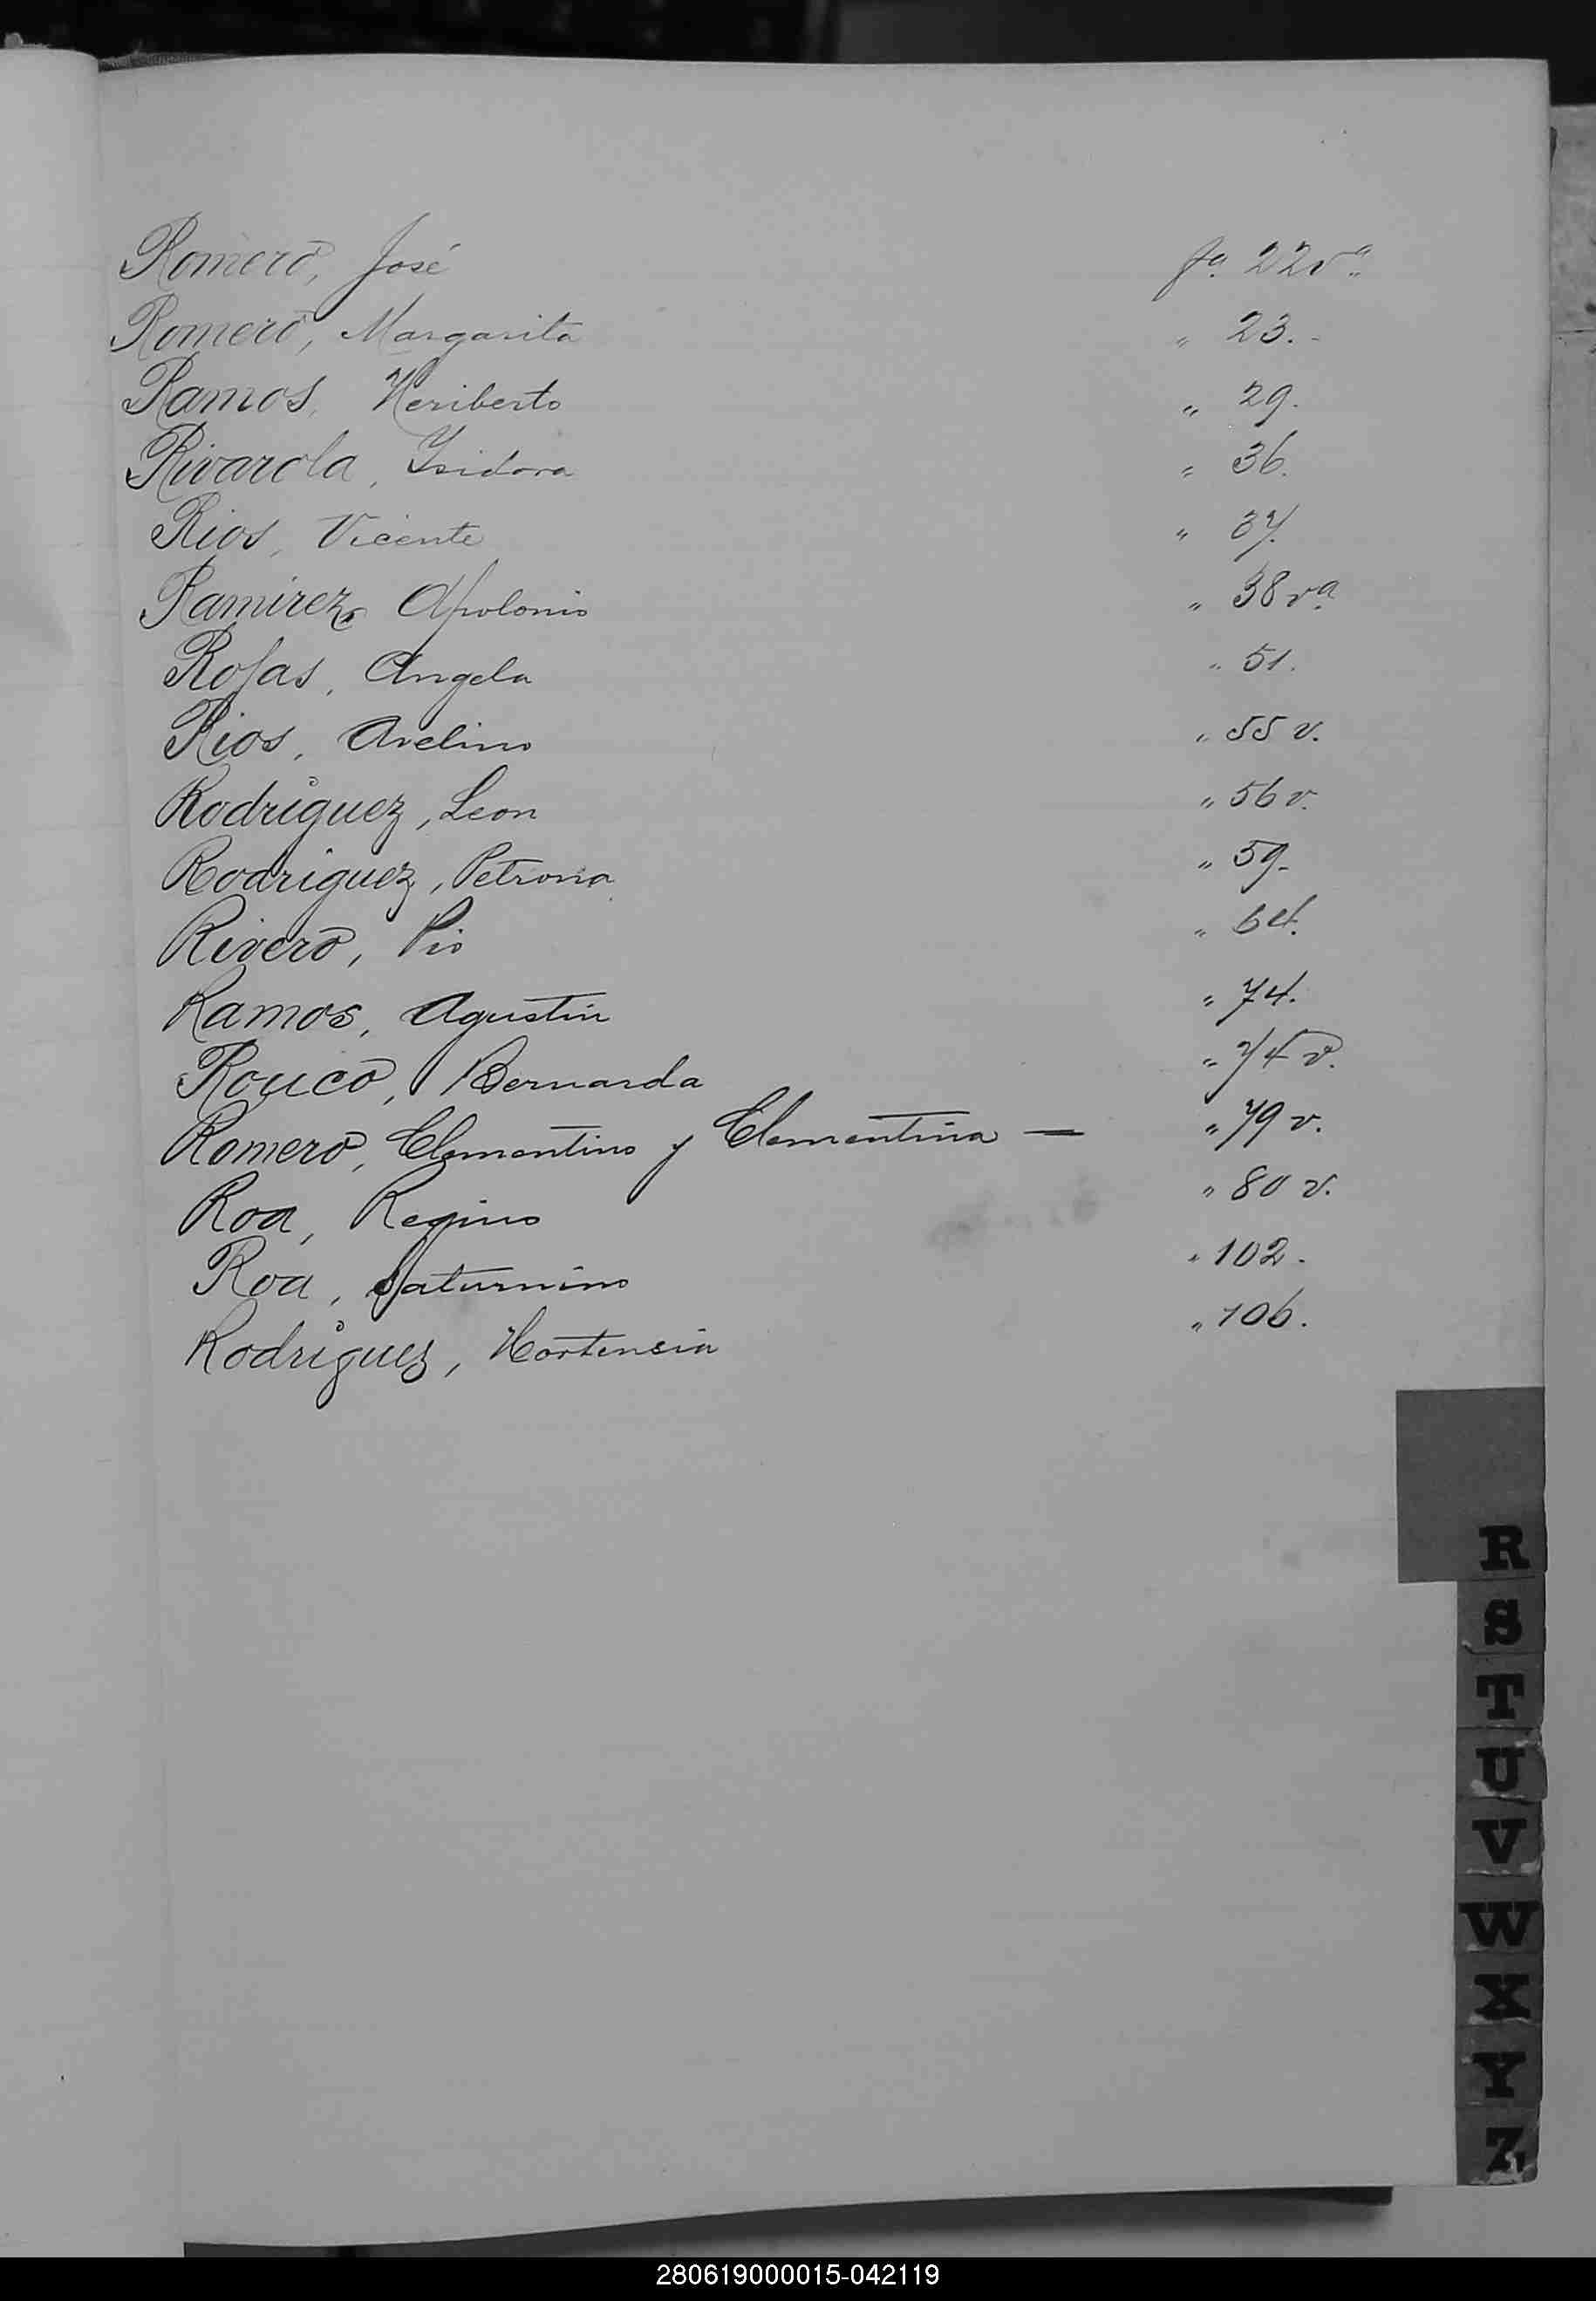 Romero, José fª 22vª
Romero, Margarita " 23.-
Ramos, Heriberto " 29.
Rivarola, Ysidora " 36.
Rios, Vicente " 37.
Ramirez, Apolonio " 38 vª
Rojas, Angela " 51.
Rios, Avelino " 55 v.
Rodriguez, Leon " 56 v.
Rodriguez, Petrona " 59-
Rivero, Pio " 64.
Ramos, Agustin " 74.
Rouco, Bernarda " 74 v.
Romero, Clementino y Clementina — " 79 v.
Roa, Regino " 80 v.
Roa, Saturnino " 102.
Rodriguez, Hortensia " 106.
R
S
T
U
V
W
X
Y
Z
280619000015-042119